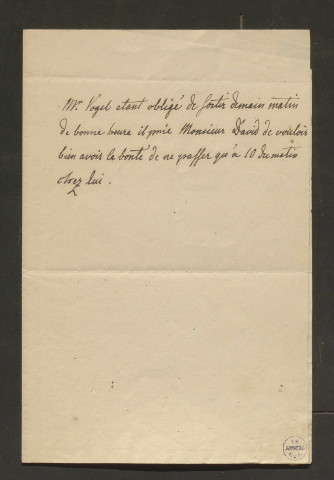 Mr. Vogel etant obligé de sortir demain matin
de bonne heure il prie Monsieur David de vouloir
bien avoir la bonté de ne passer qu'à 10 du matin
chez lui.